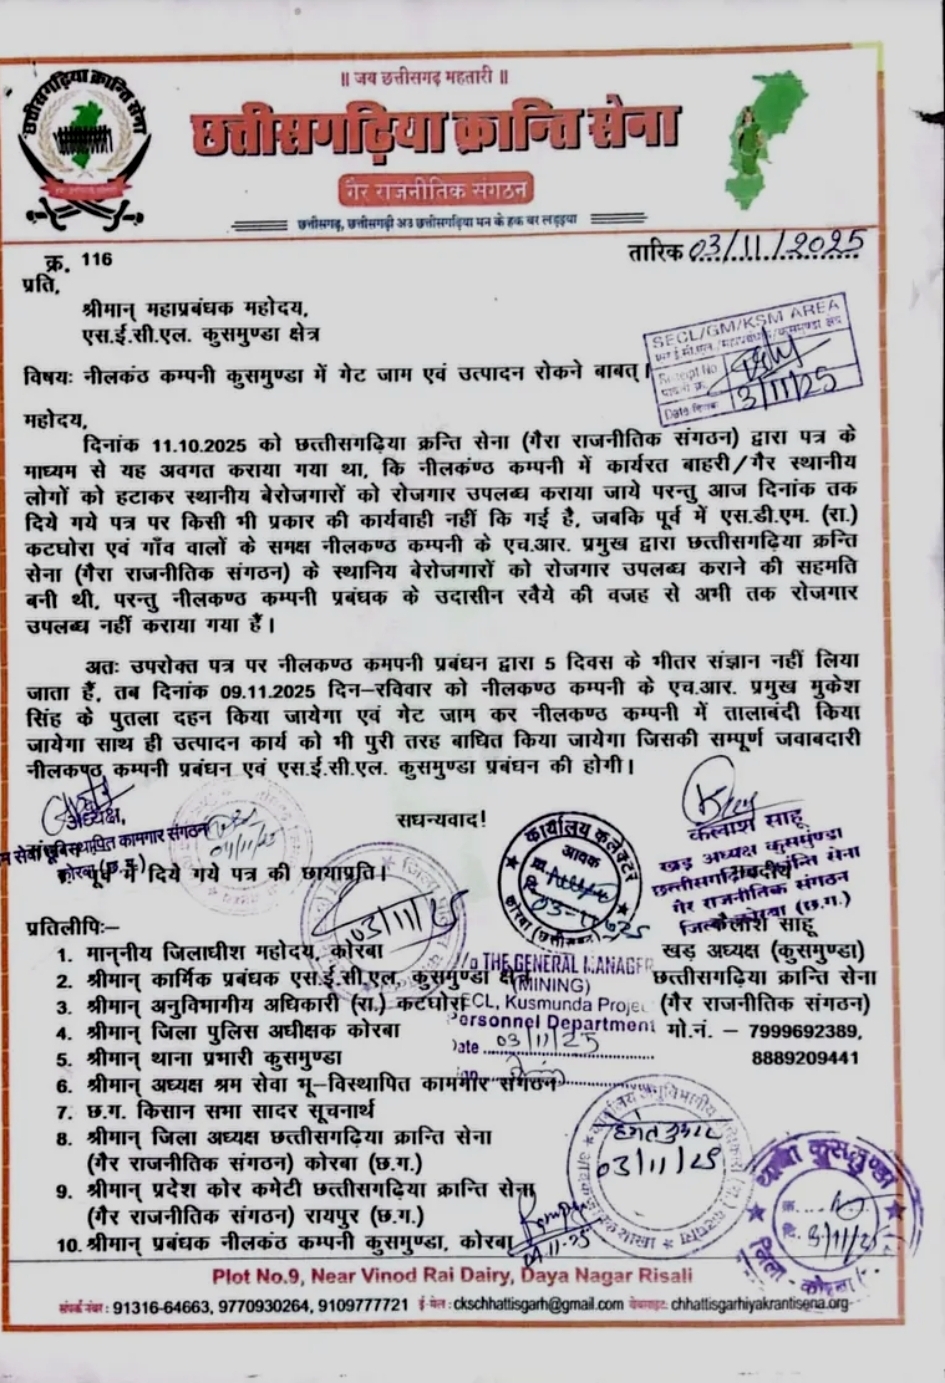 ॥ जय छत्तीसगढ़ महतारी ॥
छत्तीसगढ़िया क्रान्ति सेना
छत्तीसगढ़िया क्रान्ति सेना
गैर राजनीतिक संगठन
छत्तीसगढ़, छत्तीसगढ़ी अउ छत्तीसगढ़िया मन के हक बर लड़इया
क्र. 116
तारिक 03/11/2025
प्रति,
श्रीमान् महाप्रबंधक महोदय,
एस.ई.सी.एल. कुसमुण्डा क्षेत्र
SECL/GM/KSM AREA
Receipt No
Date दिनांक 3/11/25
विषयः नीलकंठ कम्पनी कुसमुण्डा में गेट जाम एवं उत्पादन रोकने बाबत्।
महोदय,
दिनांक 11.10.2025 को छत्तीसगढ़िया क्रन्ति सेना (गैरा राजनीतिक संगठन) द्वारा पत्र के
माध्यम से यह अवगत कराया गया था, कि नीलकंण्ठ कम्पनी में कार्यरत बाहरी/गैर स्थानीय
लोगों को हटाकर स्थानीय बेरोजगारों को रोजगार उपलब्ध कराया जाये परन्तु आज दिनांक तक
दिये गये पत्र पर किसी भी प्रकार की कार्यवाही नहीं कि गई है, जबकि पूर्व में एस.डी.एम. (रा.)
कटघोरा एवं गाँव वालों के समक्ष नीलकण्ठ कम्पनी के एच.आर. प्रमुख द्वारा छत्तीसगढ़िया क्रन्ति
सेना (गैरा राजनीतिक संगठन) के स्थानिय बेरोजगारों को रोजगार उपलब्ध कराने की सहमति
बनी थी, परन्तु नीलकण्ठ कम्पनी प्रबंधक के उदासीन रवैये की वजह से अभी तक रोजगार
उपलब्ध नहीं कराया गया हैं।
अतः उपरोक्त पत्र पर नीलकण्ठ कमपनी प्रबंधन द्वारा 5 दिवस के भीतर संज्ञान नहीं लिया
जाता हैं, तब दिनांक 09.11.2025 दिन–रविवार को नीलकण्ठ कम्पनी के एच.आर. प्रमुख मुकेश
सिंह के पुतला दहन किया जायेगा एवं गेट जाम कर नीलकण्ठ कम्पनी में तालाबंदी किया
जायेगा साथ ही उत्पादन कार्य को भी पुरी तरह बाधित किया जायेगा जिसकी सम्पूर्ण जवाबदारी
नीलकण्ठ कम्पनी प्रबंधन एवं एस.ई.सी.एल. कुसमुण्डा प्रबंधन की होगी।
सधन्यवाद!
अध्यक्ष,
विस्थापित कामगार संगठन
कोरबा (छ.ग.)
04/11/25
कार्यालय कलेक्टर
आवक
कोरबा (छत्तीसगढ़)
कैलाश साहू
खड़ अध्यक्ष कुसमुण्डा
छत्तीसगढ़िया क्रान्ति सेना
गैर राजनीतिक संगठन
जिला-कोरबा (छ.ग.)
पूर्व में दिये गये पत्र की छायाप्रति।
03/11/25
प्रतिलीपिः–
1. माननीय जिलाधीश महोदय, कोरबा
2. श्रीमान् कार्मिक प्रबंधक एस.ई.सी.एल. कुसमुण्डा क्षेत्र
3. श्रीमान् अनुविभागीय अधिकारी (रा.) कटघोरा
4. श्रीमान् जिला पुलिस अधीक्षक कोरबा
5. श्रीमान् थाना प्रभारी कुसमुण्डा
6. श्रीमान् अध्यक्ष श्रम सेवा भू–विस्थापित कामगार संगठन
7. छ.ग. किसान सभा सादर सूचनार्थ
8. श्रीमान् जिला अध्यक्ष छत्तीसगढ़िया क्रान्ति सेना
(गैर राजनीतिक संगठन) कोरबा (छ.ग.)
9. श्रीमान् प्रदेश कोर कमेटी छत्तीसगढ़िया क्रान्ति सेना
(गैर राजनीतिक संगठन) रायपुर (छ.ग.)
10. श्रीमान् प्रबंधक नीलकंठ कम्पनी कुसमुण्डा, कोरबा
कैलाश साहू
खड़ अध्यक्ष (कुसमुण्डा)
छत्तीसगढ़िया क्रान्ति सेना
(गैर राजनीतिक संगठन)
मो.नं. – 7999692389,
8889209441
THE GENERAL MANAGER
(MINING)
SECL, Kusmunda Project
Personnel Department
Date 03/11/25
03/11/25
थाना कुसमुण्डा
3/11/25
जिला - कोरबा
04-11-25
Plot No.9, Near Vinod Rai Dairy, Daya Nagar Risali
संपर्क नंबर : 91316-64663, 9770930264, 9109777721 ई-मेल : ckschhattisgarh@gmail.com वेबसाइट: chhattisgarhiyakrantisena.org